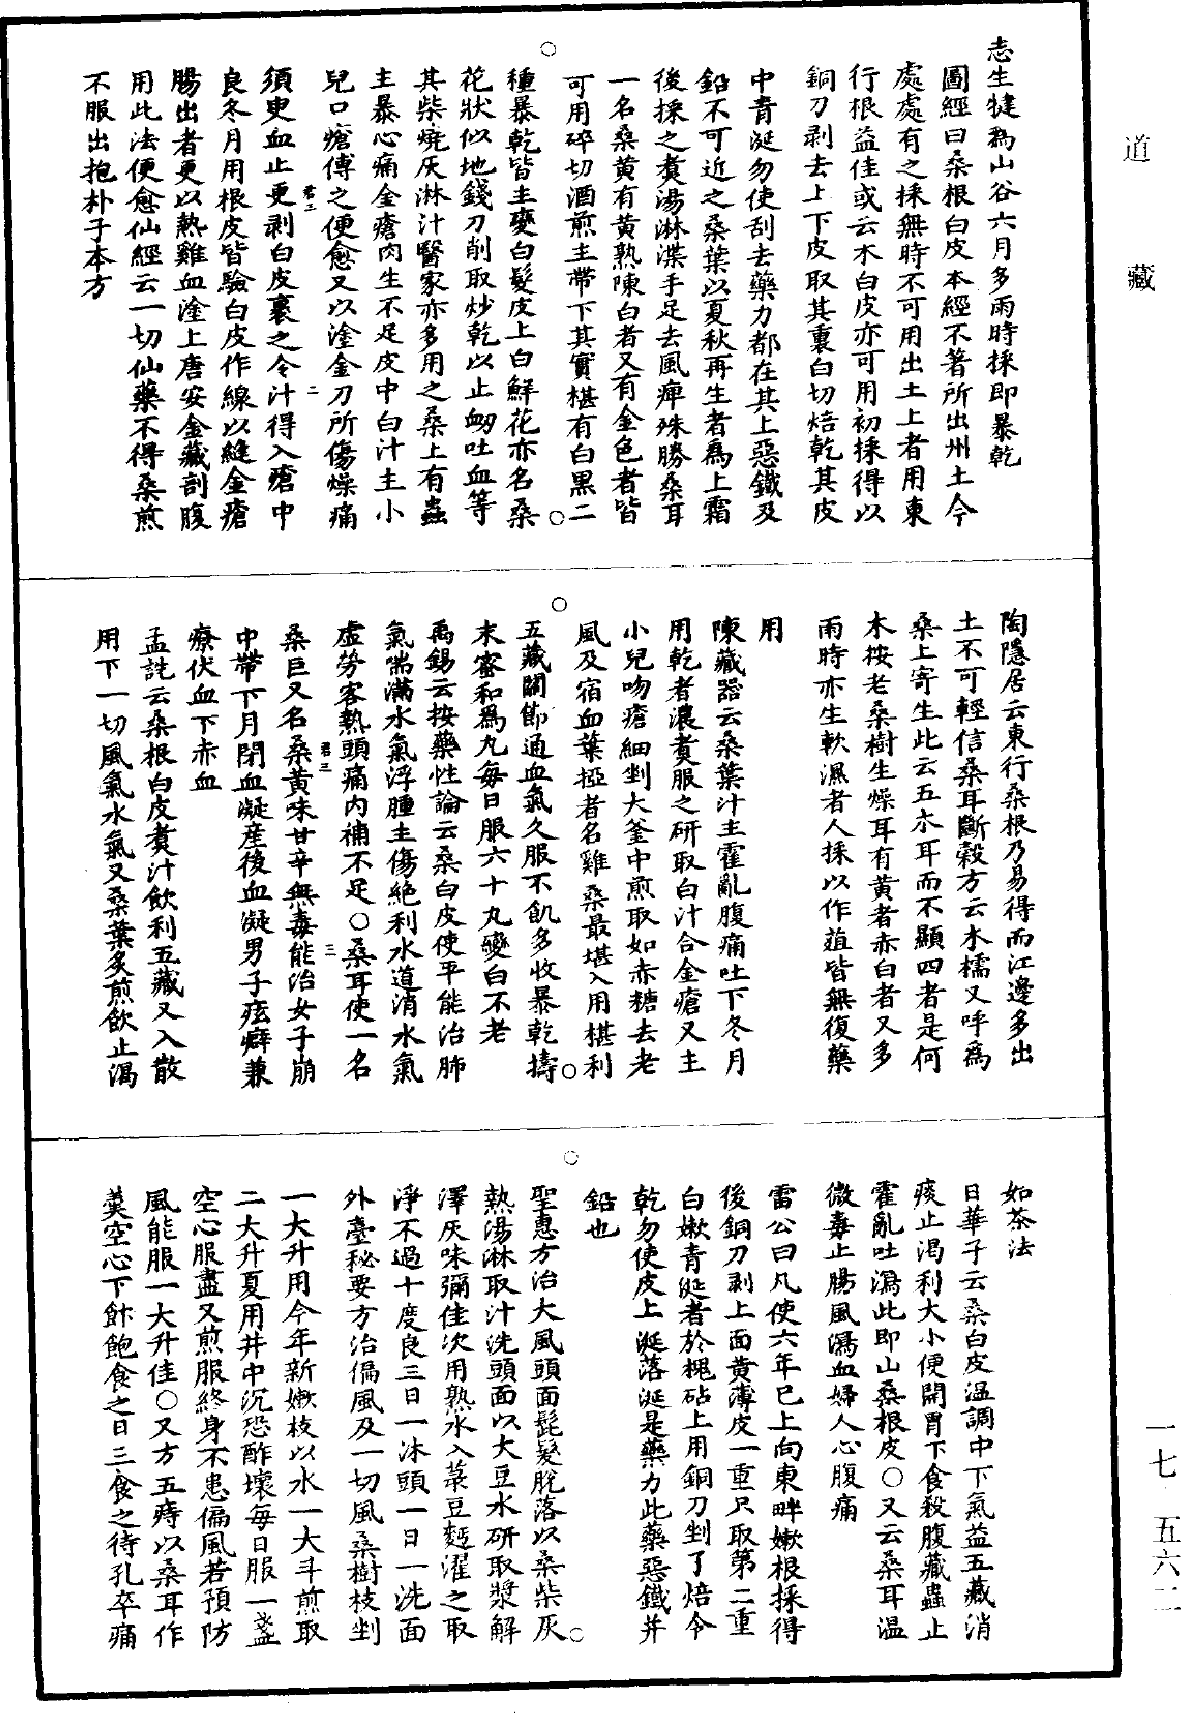 道藏
志生犍為山谷六月多雨時採即暴乾
圖經曰桑根白皮本經不著所出州土今
處處有之採無時不可用出土上者用東
行根益佳或云木白皮亦可用初採得以
銅刀剥去上下皮取其裏白切焙乾其皮
中青涎勿使刮去藥力都在其上惡鐵及
鉛不可近之桑葉以夏秋再生者爲上霜
後採之煮湯淋渫手足去風痺殊勝桑耳
一名桑黃有黃熟陳白者又有金色者皆
可用碎切酒煎主帶下其實椹有白黑二
種暴乾皆主變白髮皮上白鮮花亦名桑
花狀似地錢刀削取炒乾以止衂吐血等
其柴燒灰淋汁醫家亦多用之桑上有蟲
主暴心痛金瘡肉生不足皮中白汁主小
兒口瘡傅之便愈又以塗金刀所傷燥痛
須臾血止更剥白皮裹之令汁得入瘡中
良冬月用根皮皆驗白皮作線以縫金瘡
腸出者更以熱雞血塗上唐安金藏剖腹
用此法便愈仙經云一切仙藥不得桑煎
不服出抱朴子本方
君二
二
陶隱居云東行桑根乃易得而江邊多出
土不可輕信桑耳斷穀方云木檽又呼爲
桑上寄生此云五木耳而不顯四者是何
木按老桑樹生燥耳有黃者赤白者又多
雨時亦生軟濕者人採以作葅皆無復藥
用
陳藏器云桑葉汁主霍亂腹痛吐下冬月
用乾者濃煮服之研取白汁合金瘡又主
小兒吻瘡細剉大釜中煎取如赤糖去老
風及宿血葉椏者名雞桑最堪入用椹利
五藏關節通血氣久服不飢多收暴乾擣
末蜜和爲丸每日服六十丸變白不老
禹錫云按藥性論云桑白皮使平能治肺
氣喘滿水氣浮腫主傷絶利水道消水氣
虛勞客熱頭痛內補不足○桑耳使一名
桑臣又名桑黃味甘辛無毒能治女子崩
中帶下月閉血凝産後血凝男子痃癖兼
療伏血下赤血
孟詵云桑根白皮煮汁飲利五藏又入散
用下一切風氣水氣又桑葉炙煎飲止渴
君三
三
如茶法
日華子云桑白皮溫調中下氣益五藏消
痰止渴利大小便開胃下食殺腹藏蟲止
霍亂吐瀉此即山桑根皮○又云桑耳溫
微毒止腸風瀉血婦人心腹痛
雷公曰凡使六年已上向東畔嫰根採得
後銅刀剥上面黃薄皮一重只取第二重
白嫰青涎者於槐砧上用銅刀剉了焙令
乾勿使皮上涎落涎是藥力此藥惡鐵并
鉛也
聖惠方治大風頭面髭髮脫落以桑柴灰
熱湯淋取汁洗頭面以大豆水研取漿解
澤灰味彌佳次用熟水入菉豆麪濯之取
淨不過十度良三日一沐頭一日一洗面
外臺秘要方治偏風及一切風桑樹枝剉
一大升用今年新嫰枝以水一大斗煎取
二大升夏用井中沉恐酢壞每日服一盞
空心服盡又煎服終身不患偏風若預防
風能服一大升佳○又方五痔以桑耳作
羹空心下飰飽食之日三食之待孔卒痛
一七·五六二